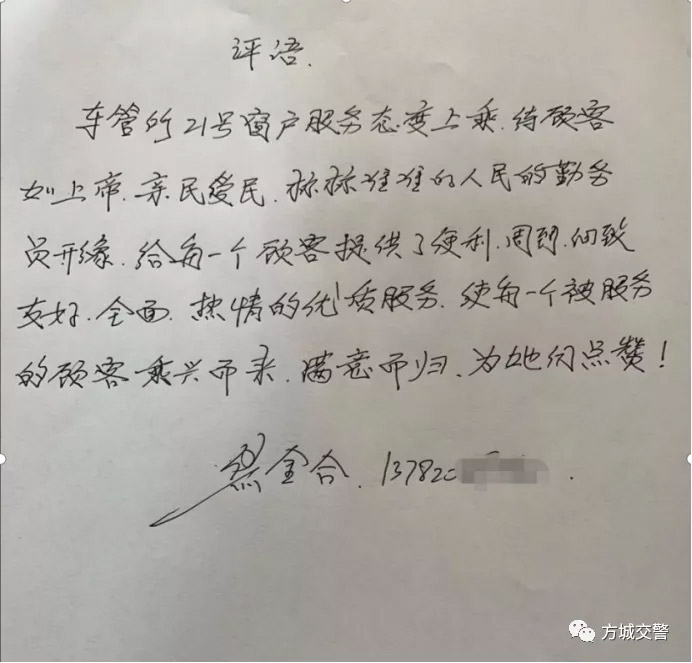 评语.
车管所21号窗户服务态度上乘.待顾客
如上帝.亲民爱民.标标准准的人民的勤务
员形象.给每一个顾客提供了便利.周到.细致
友好.全面.热情的优质服务.使每一个被服务
的顾客乘兴而来.满意而归.为她们点赞!
金合.13782
方城交警